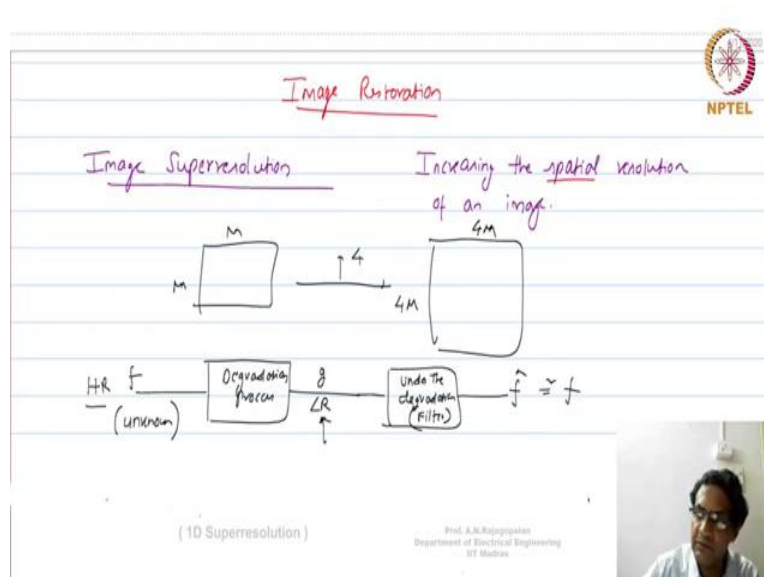 NPTEL
Image Restoration
Image Superresolution
Increasing the spatial resolution
of an image.
M
4M
M
↑4
4M
HR f
(unknown)
Degradation
process
g
LR
↑
Undo the
degradation
(Filter)
f̂ ≅ f
( 1D Superresolution )
Prof. A.N.Rajagopalan
Department of Electrical Engineering
IIT Madras